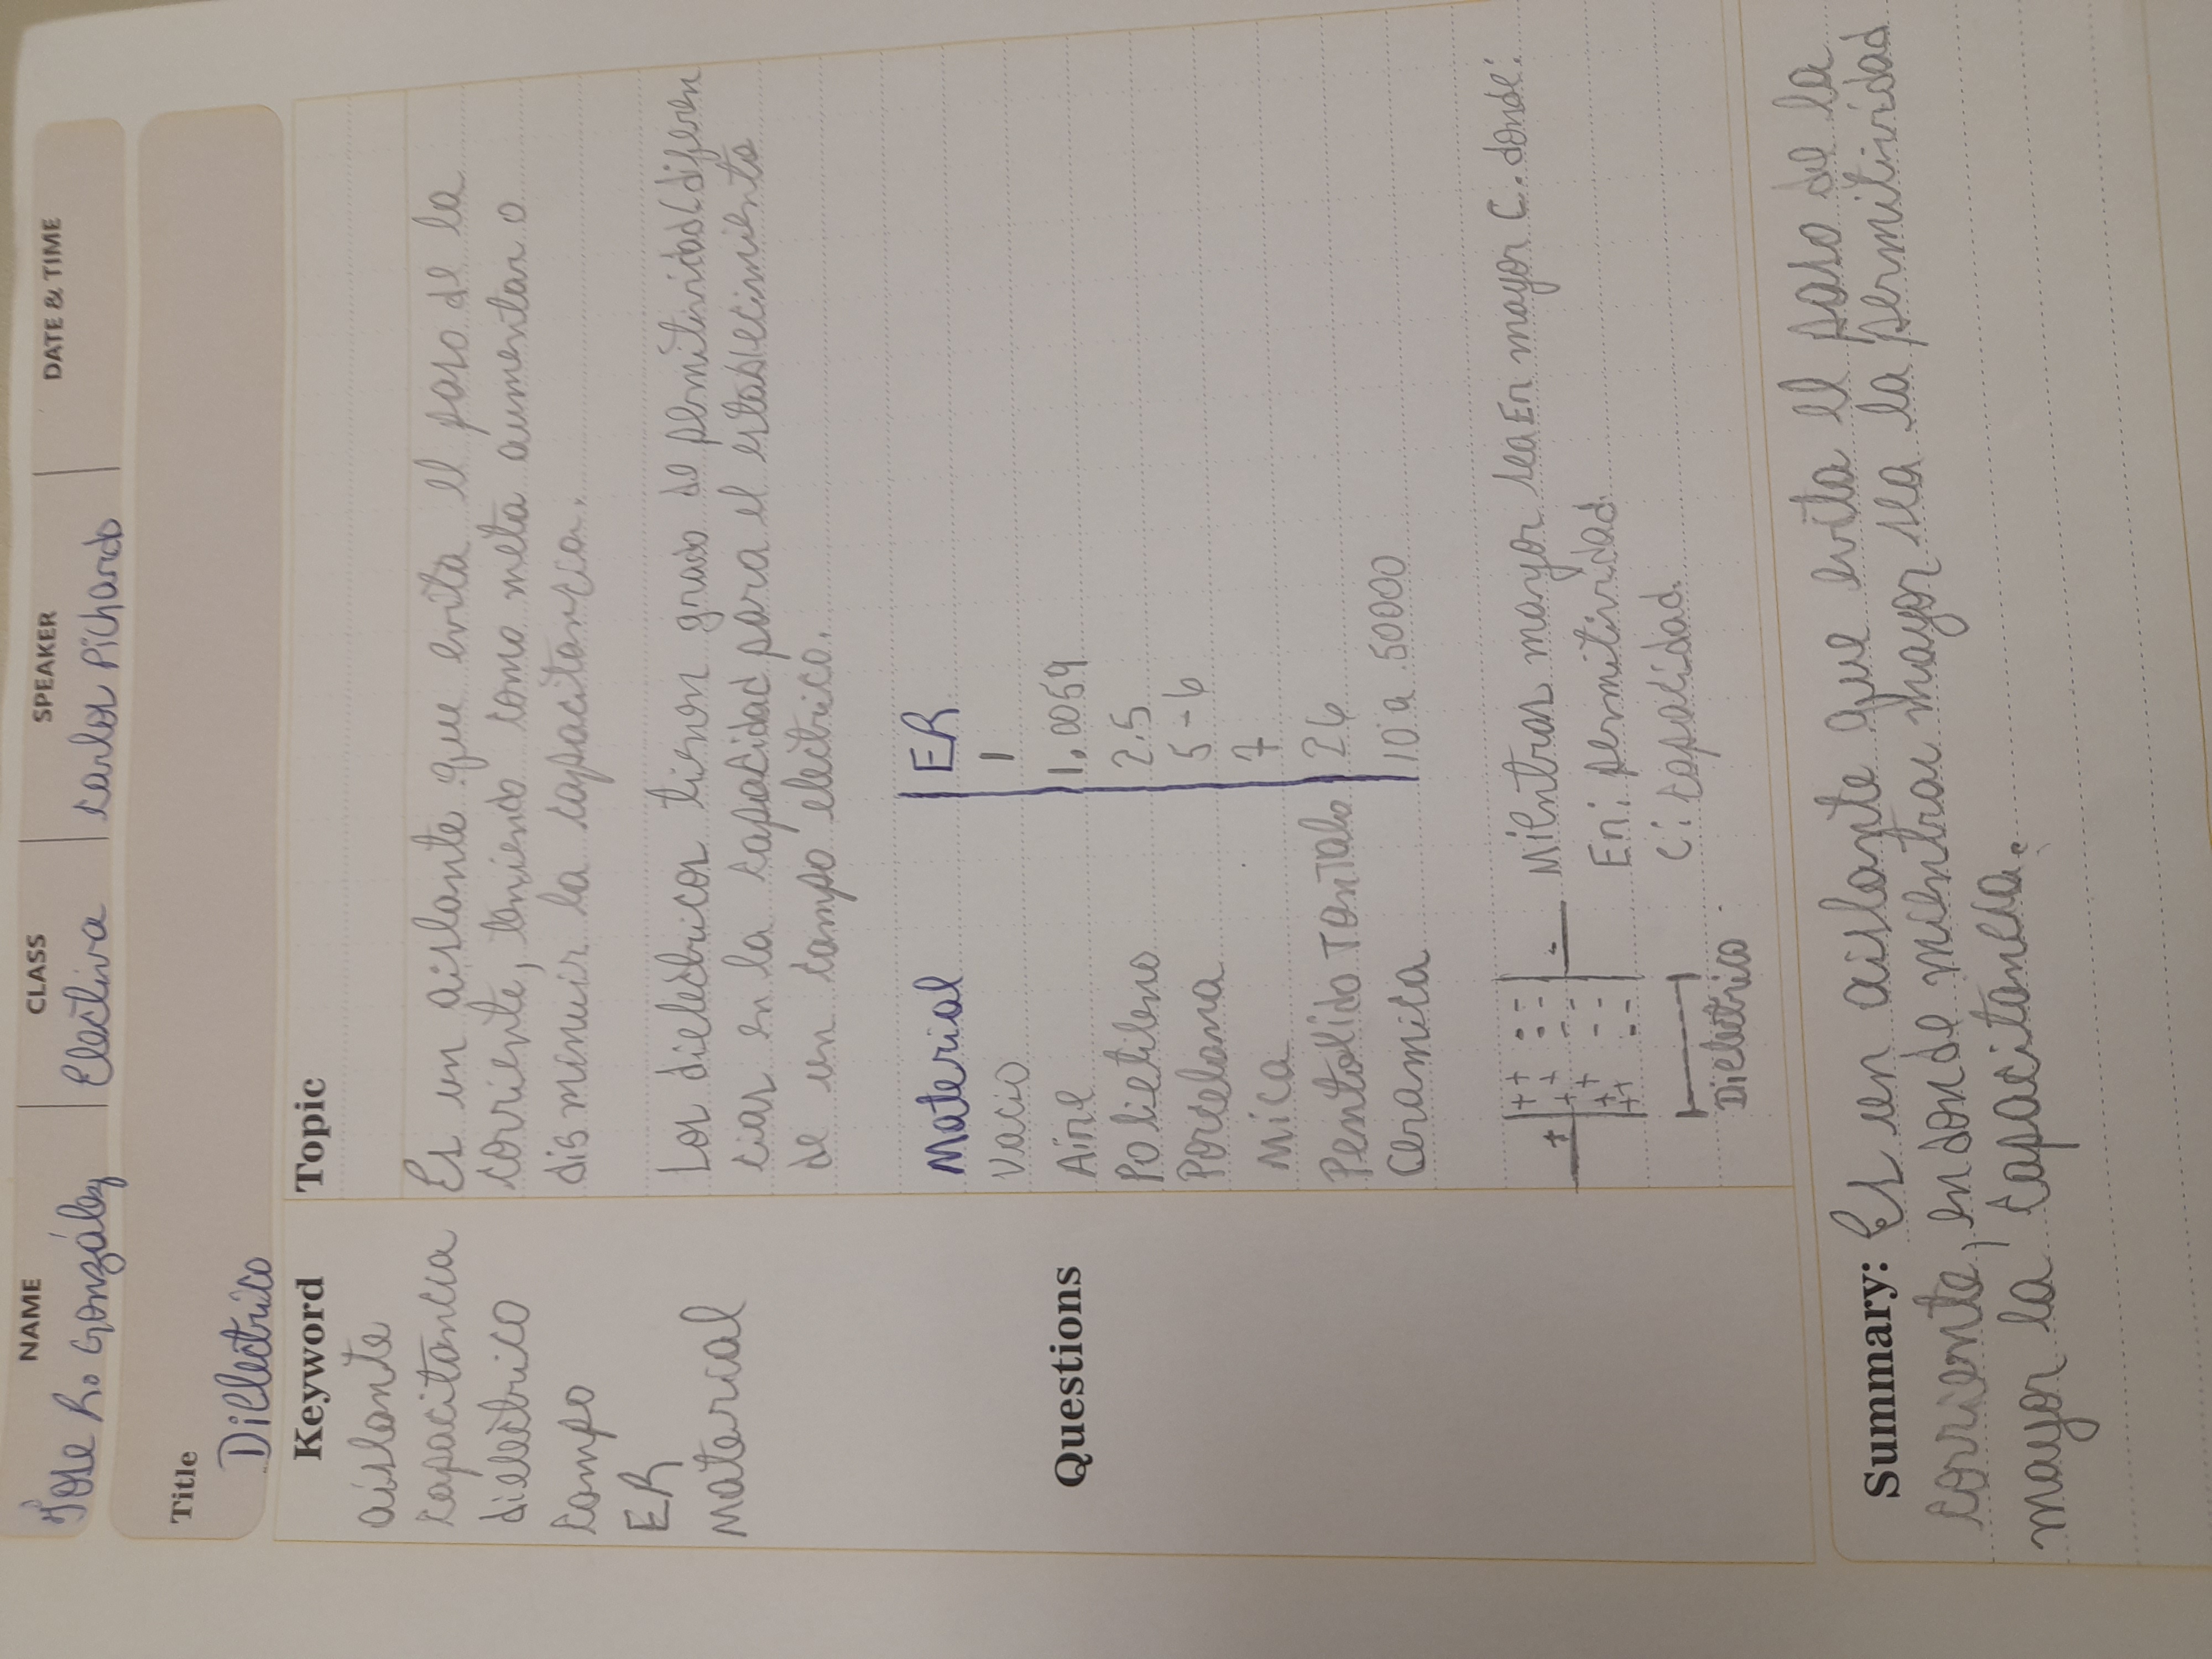 NAME CLASS SPEAKER DATE & TIME
Jose R. González Electiva Carlos Pichardo
Title
Dielectrico
Keyword Topic
aislante
capacitancia
dielectrico
Campo
ER
Material
Es un aislante que evita el paso de la
corriente, teniendo como meta aumentar o
disminuir la capacitancia.
Los dielectricos tienen grado de permitividad (diferen
cias en la capacidad para el establecimiento
de un campo electrico.
Material ER
Vacio 1
Questions
Aire 1.0059
Polietileno 2.5
Porcelana 5-6
Mica 7
Pentolido TanTalo 26
Ceramica 10 a 50000
Mientras mayor sea Er mayor C. donde:
Er: permitividad
C: capacidad.
Dielectrico
Summary: Es un aislante que evita el paso de la
corriente, en donde mientras mayor sea la permitividad
mayor la capacitancia.